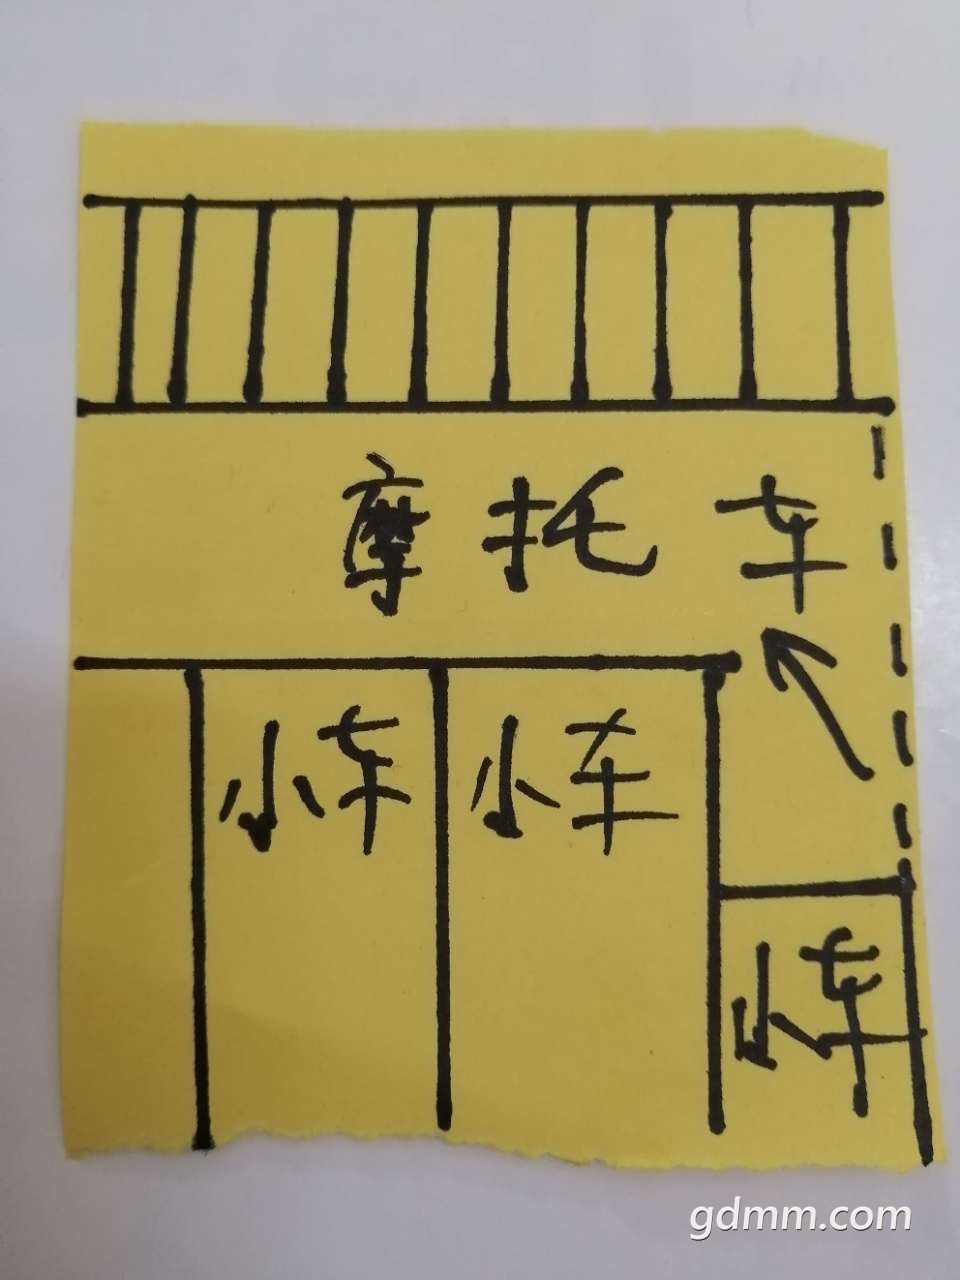 摩托车
小车 小车
小车
gdmm.com